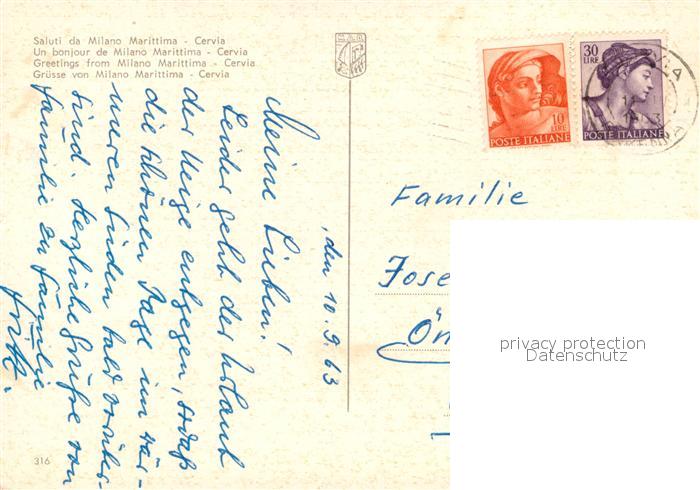 Saluti da Milano Marittima - Cervia
Un bonjour de Milano Marittima - Cervia
Greetings from Milano Marittima - Cervia
Grüsse von Milano Marittima - Cervia
10
LIRE
POSTE ITALIANE
30
LIRE
POSTE ITALIANE
, den 10. 9. 63
Meine Lieben!
Leider geht der Urlaub
der Neige entgegen, sodaß
die schönen Tage im war-
meren Süden bald vorüber
sind. Herzliche Grüße von
Familie zu Familie
Familie
Jose
Ön
privacy protection
Datenschutz
316